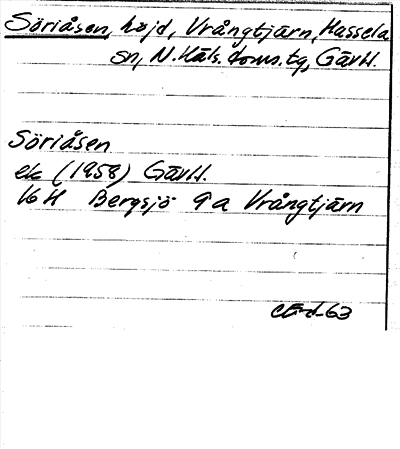 Söriåsen, höjd, Vrångtjärn, Hassela
sn, N. Häls. doms. tg, GävlH.
Söriåsen
ek (1958) GävlH.
16 H Bergsjö 9a Vrångtjärn
-63